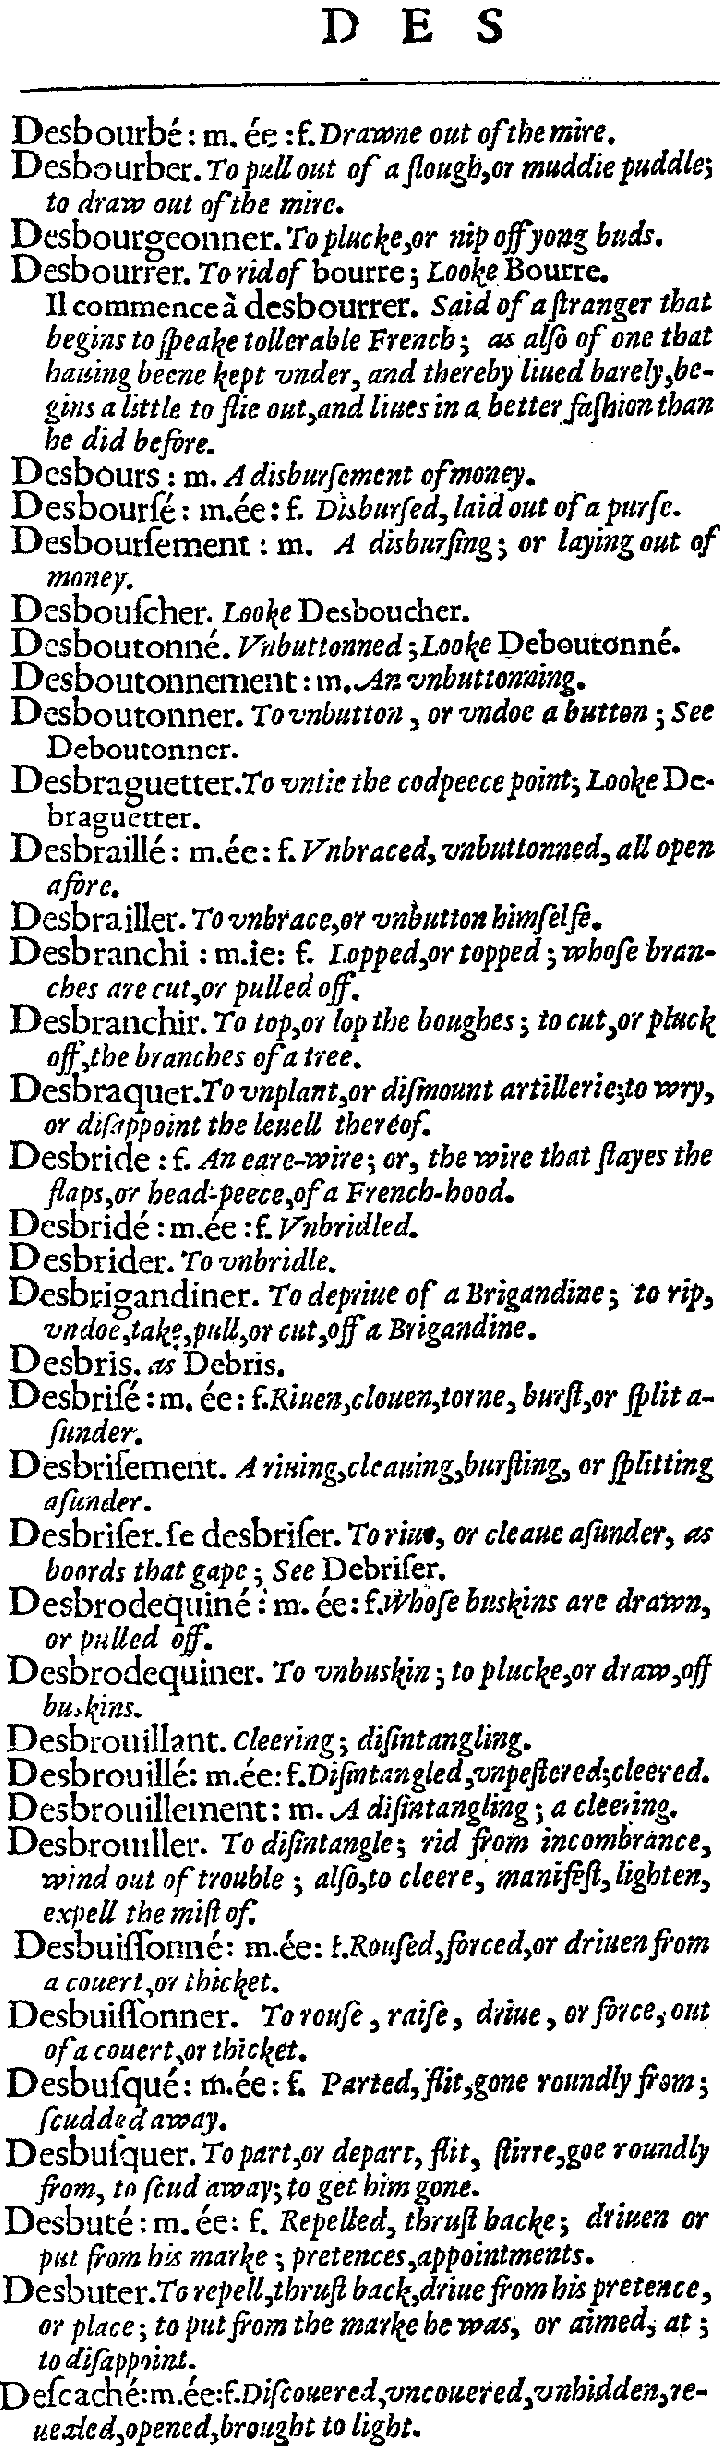 D E S
Desbourbé : m. ée : f. Drawne out of the mire.
Desbourber. To pull out of a ſlough, or muddie puddle;
to draw out of the mire.
Desbourgeonner. To plucke, or nip off yong buds.
Desbourrer. To rid of bourre; Looke Bourre.
Il commence à desbourrer. Said of a ſtranger that
begins to ſpeake tollerable French; as alſo of one that
hauing beene kept vnder, and thereby liued barely, be-
gins a little to flie out, and liues in a better faſhion than
he did before.
Desbours : m. A disburſement of money.
Desbourſé : m. ée : f. Disburſed, laid out of a purſe.
Desbourſement : m. A disburſing; or laying out of
money.
Desbouſcher. Looke Desboucher.
Desboutonné. Vnbuttonned; Looke Deboutonné.
Desboutonnement : m. An vnbuttonning.
Desboutonner. To vnbutton, or vndoe a button; See
Deboutonner.
Desbraguetter. To vntie the codpeece point; Looke De-
braguetter.
Desbraillé : m. ée : f. Vnbraced, vnbuttonned, all open
afore.
Desbrailler. To vnbrace, or vnbutton himſelfe.
Desbranchi : m. ie : f. Lopped, or topped; whoſe bran-
ches are cut, or pulled off.
Desbranchir. To top, or lop the boughes; to cut, or pluck
off, the branches of a tree.
Desbraquer. To vnplant, or diſmount artillerie; to wry,
or diſappoint the leuell thereof.
Desbride : f. An eare-wire; or, the wire that ſtayes the
flaps, or head-peece, of a French-hood.
Desbridé : m. ée : f. Vnbridled.
Desbrider. To vnbridle.
Desbrigandiner. To depriue of a Brigandine; to rip,
vndoe, take, pull, or cut, off a Brigandine.
Desbris. as Debris.
Desbriſé : m. ée : f. Riuen, clouen, torne, burſt, or ſplit a-
ſunder.
Desbriſement. A riuing, cleauing, burſting, or ſplitting
aſunder.
Desbriſer. ſe desbriſer. To riue, or cleaue aſunder, as
boords that gape; See Debriſer.
Desbrodequiné : m. ée : f. Whoſe buskins are drawn,
or pulled off.
Desbrodequiner. To vnbuskin; to plucke, or draw, off
buskins.
Desbrouillant. Cleering; diſintangling.
Desbrouillé : m. ée : f. Diſintangled, vnpeſtered; cleered.
Desbrouillement : m. A diſintangling; a cleering.
Desbrouiller. To diſintangle; rid from incombrance,
wind out of trouble; alſo, to cleere, manifeſt, lighten,
expell the miſt of.
Desbuiſſonné : m. ée : f. Rouſed, forced, or driuen from
a couert, or thicket.
Desbuiſſonner. To rouſe, raiſe, driue, or force, out
of a couert, or thicket.
Desbuſqué : m. ée : f. Parted, flit, gone roundly from;
ſcudded away.
Desbuſquer. To part, or depart, flit, ſtirre, goe roundly
from, to ſcud away; to get him gone.
Desbuté : m. ée : f. Repelled, thruſt backe; driuen or
put from his marke; pretences, appointments.
Desbuter. To repell, thruſt back, driue from his pretence,
or place; to put from the marke he was, or aimed, at;
to diſappoint.
Deſcaché : m. ée : f. Diſcouered, vncouered, vnhidden, re-
uealed, opened, brought to light.